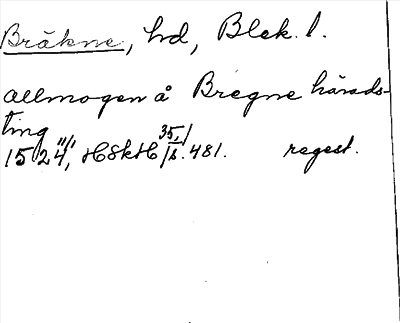 Bräkne, hd, Blek. l.
allmogen å Bregne härads-
ting
1524 11/1, HSkH 35,1 /s. 481. regest.